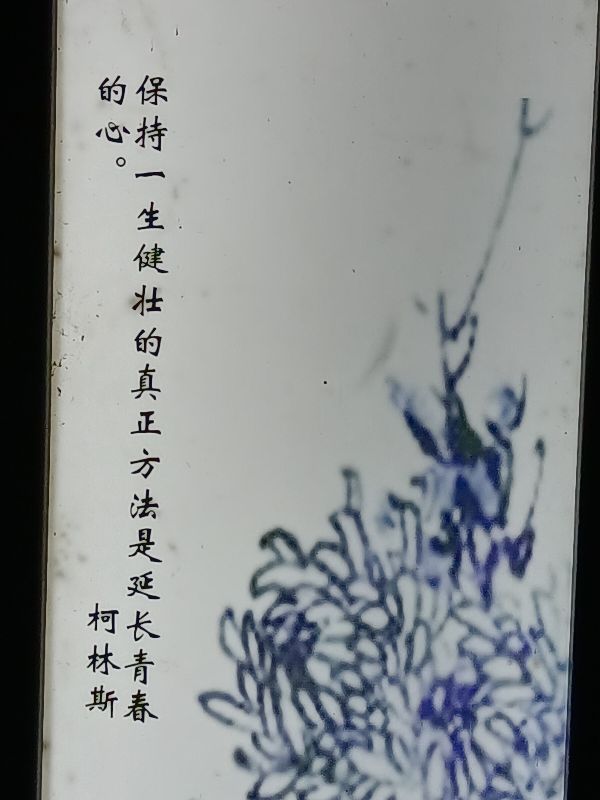 保持一生健壮的真正方法是延长青春
的心。
柯林斯